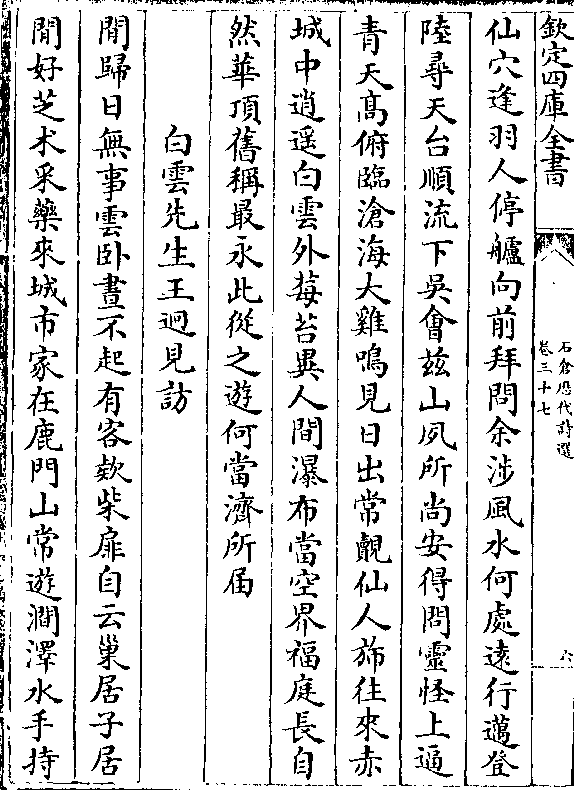 欽定四庫全書
石倉歷代詩選
卷三十七
六
仙穴逢羽人停艫向前拜問余涉風水何處遠行邁登
陸尋天台順流下吳會兹山夙所尚安得問靈怪上逼
青天高俯臨滄海大雞鳴見日出常覿仙人斾往來赤
城中逍遥白雲外莓苔異人間瀑布當空界福庭長自
然華頂舊稱最永此從之遊何當濟所届
白雲先生王迥見訪
閒歸日無事雲卧晝不起有客欵柴扉自云巢居子居
閒好芝术采藥來城市家在鹿門山常遊澗澤水手持